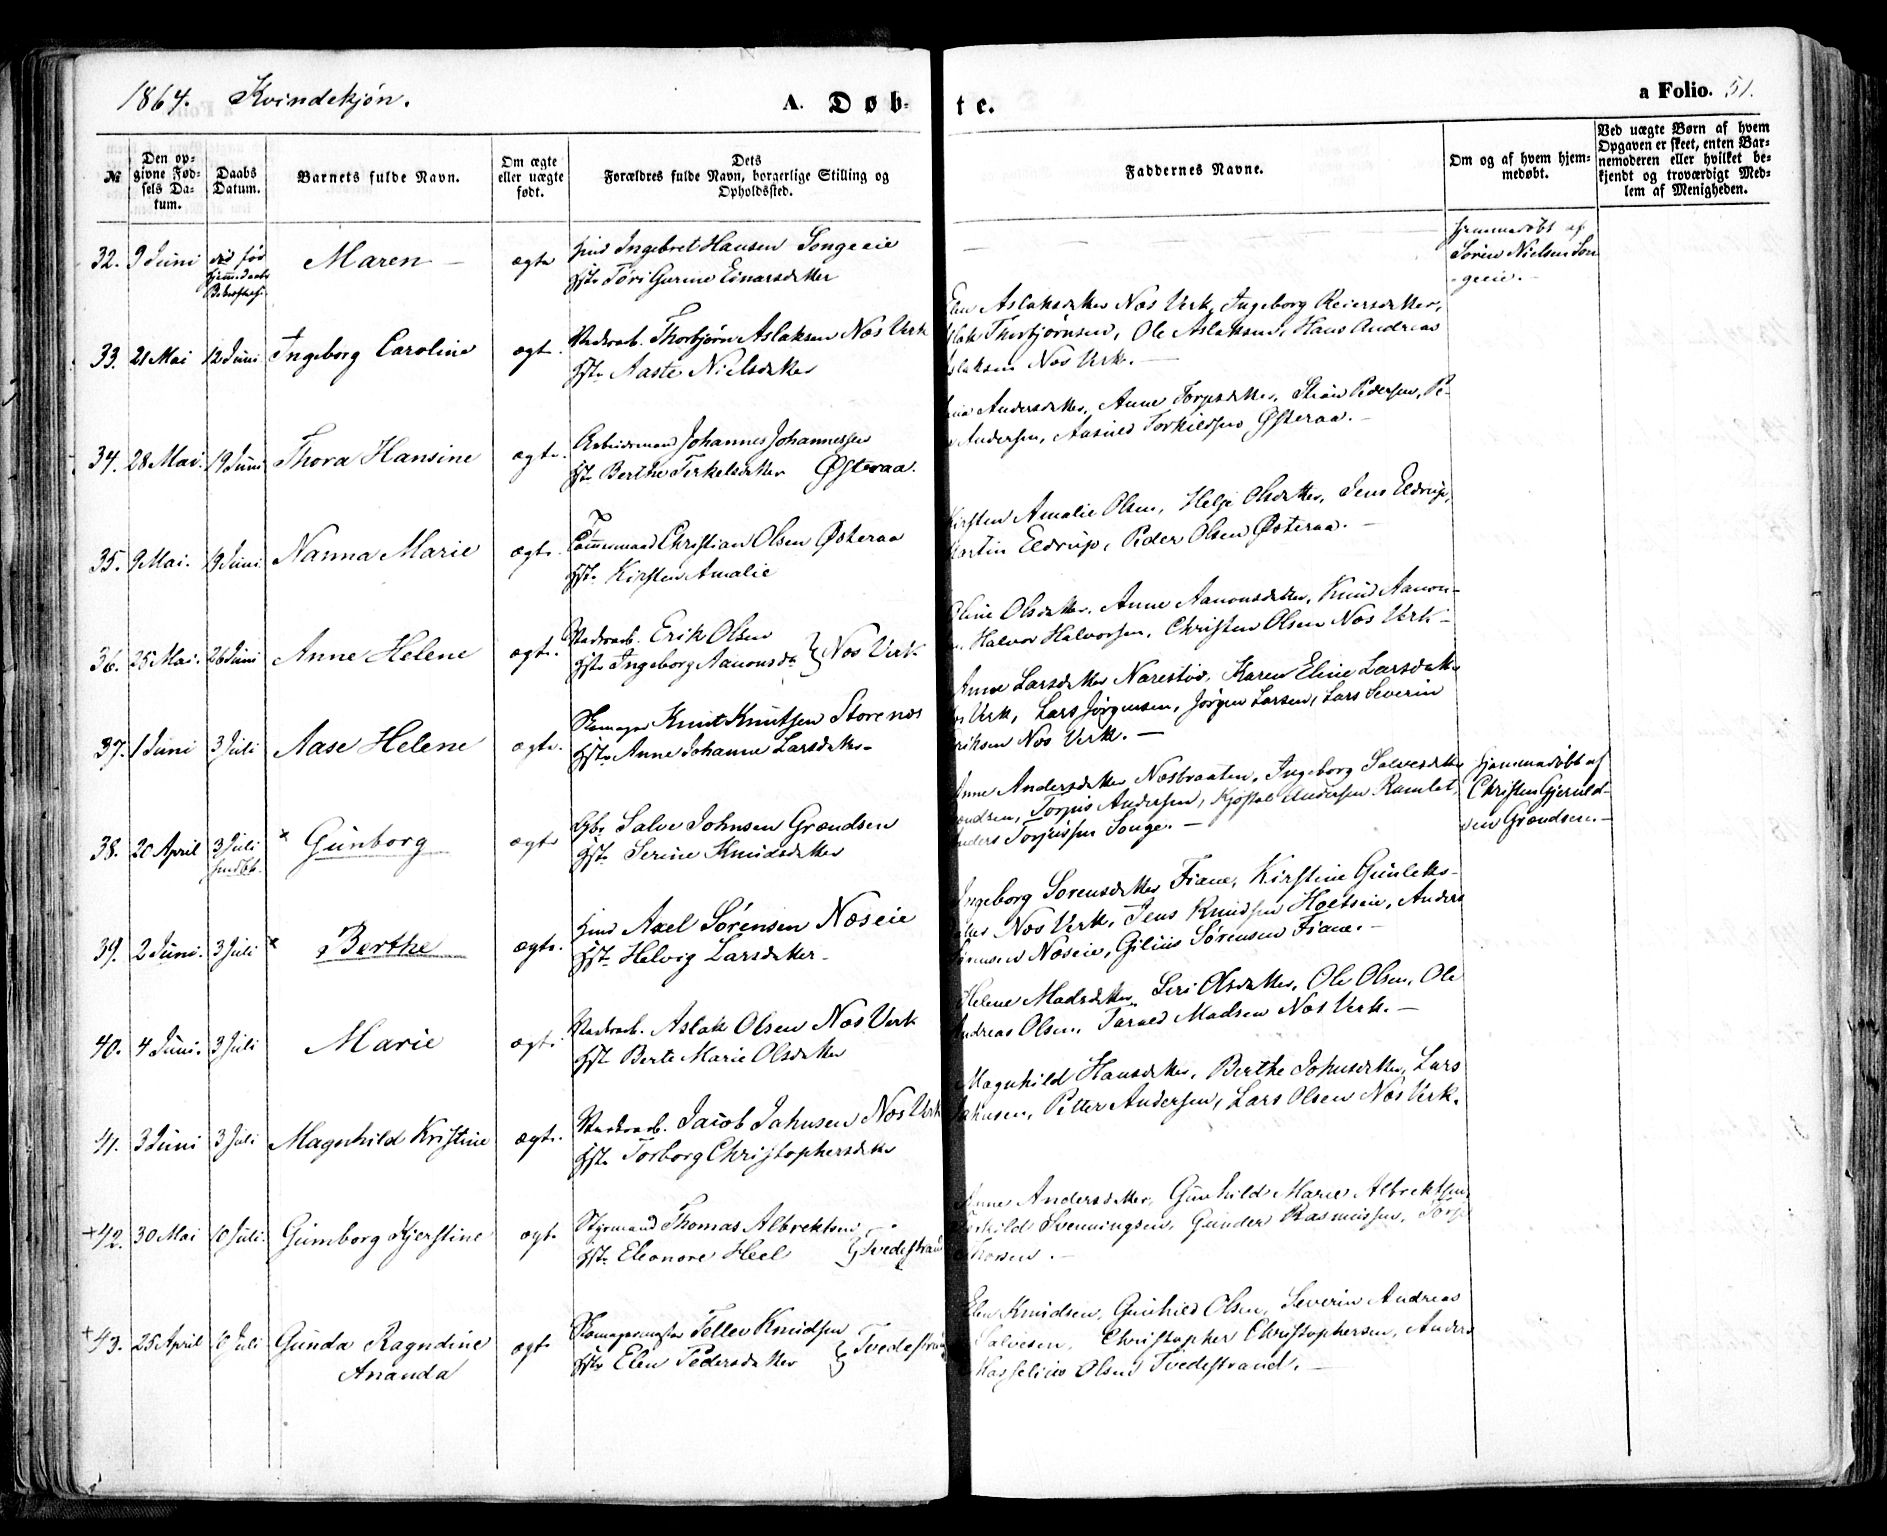 1864. Kvindekjøn. A. Døbte. a Folio. 51.
№
Den opgivne Fødsels Datum.
Daabs Datum.
Barnets fulde Navn.
Om ægte eller uægte født.
Dets Forældres fulde Navn, borgerlige Stilling og Opholdssted.
Faddernes Navne.
Om og af hvem hjemmedøbt.
Ved uægte Børn af hvem Opgaven er skeet, enten Barnemoderen eller hvilket bekjendt og troværdigt Medlem af Menigheden.
32. 9 Juni Maren – ægte Ingebret Hansen Songeeie
Hst. Töri Gurine Einarsdatter
hjemmedöbt af
Søren Nielsen Son
geeie.
33. 21 Mai 12 Juni Ingeborg Caroline ægt. Thorbjørn Aslaksen Næs Verk
Hst. Aaste Nielsdatter
Aslaksdatter Næs Verk, Ingeborg Reiersdatter,
Thorbjørnsen, Ole Aslaksen, Hans Andreas
laksen Næs Verk. –
34. 28 Mai. 19 Juni Thora Hansine ægte. Arbeidsmand Johannes Johannessen
Hst. Berthe Terkelsdatter Østeraa.
Andersdatter, Anne Torjusdatter, Stian Pedersen, Pe-
Andersen, Torkildsen Østeraa. –
35. 9 Mai. 19 Juni Nanna Marie ægte. Tømmermand Christian Olsen Østeraa
Hst. Kirsten Amalie
Kirsten Amalie Olsen, Helje Olsdatter, Jens Eldrup,
Martin Eldrup, Peder Olsen Østeraa. –
36. 25 Mai. 26 Juni Anne Helene ægte. Erik Olsen
Hst. Ingeborg Aanonsda } Næs Verk
Eline Olsdatter, Anne Aanonsdatter, Knud Aanon-
Halvor Halvorsen, Christen Olsen Næs Verk –
37. 1 Juni 3 Juli Aase Helene ægte. Skomager Knut Knutsen Storenæs
Hst. Anne Johanne Larsdatter
Anne Larsdatter Narestø, Karen Eline Larsdatte
Verk, Lars Jørgensen, Jørgen Larsen, Lars Severin
riksen Næs Verk. –
38. 20 April 3 Juli × Gunborg ægte Gbr. Salve Johnsen Grændsen
Hst. Serine Knudsdatter
Anne Andersdatter Næsbraaten, Ingeborg Salvesdatter
ændsen, Torjus Andersen, Kjøstol Andersen Ramlet,
nders Torjussen Songe. –
hjemmedöbt af
Christen Gjeruld-
sen Grændsen. –
39. 2 Juni. 3 Juli × Berthe ægte. Axel Sørensen Næseie
Hst. Helvig Larsdatter –
Ingeborg Sørensdatter Fiane, Kirstine Gunleks-
datter Næs Verk, Jens Knudsen Holtseie, Anders
Sørensen Næseie, Gilius Sørensen Fiane. –
40. 4 Juni. 3 Juli Marie ægt. Aslak Olsen Næs Verk
Hst. Berte Marie Olsdatter
Helene Madsdatter, Siri Olsdatter, Ole Olsen, Ole
Andreas Olsen, Tarald Madsen Næs Verk. –
41. 3 Juni 3 Juli Magnhild Kristine ægte. Jacob Jahnsen Næs Verk
Hst. Torborg Christophersdatter
Magnhild Hansdatter, Berthe Johnsdatter, Lars
Jahnsen, Petter Andersen, Lars Olsen Næs Verk.
+42. 30 Mai 10 Juli. Gumborg Kjerstine ægte Styrmand Thomas Albrektsen
Hst. Eleonore Heel } Tvedestrand
Anne Andersdatter, Gunhild Marie Albrektsen
Svenningsen, Gunder Rasmussen,
Thorsen. –
+43. 25 April 10 Juli Gunda Ragndine
Ananda ægte Skomagermester Tellev Knudsen
Hst. Elen Pedersdatter } Tvedestrand
Elen Knudsen, Gunhild Olsen, Severin Andreas
Salvesen, Christopher Christophersen, Anders
Olsen Tvedestrand. –